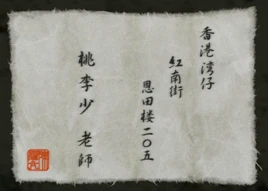 香港湾仔
紅南街
恩田楼二〇五
桃李少 老師